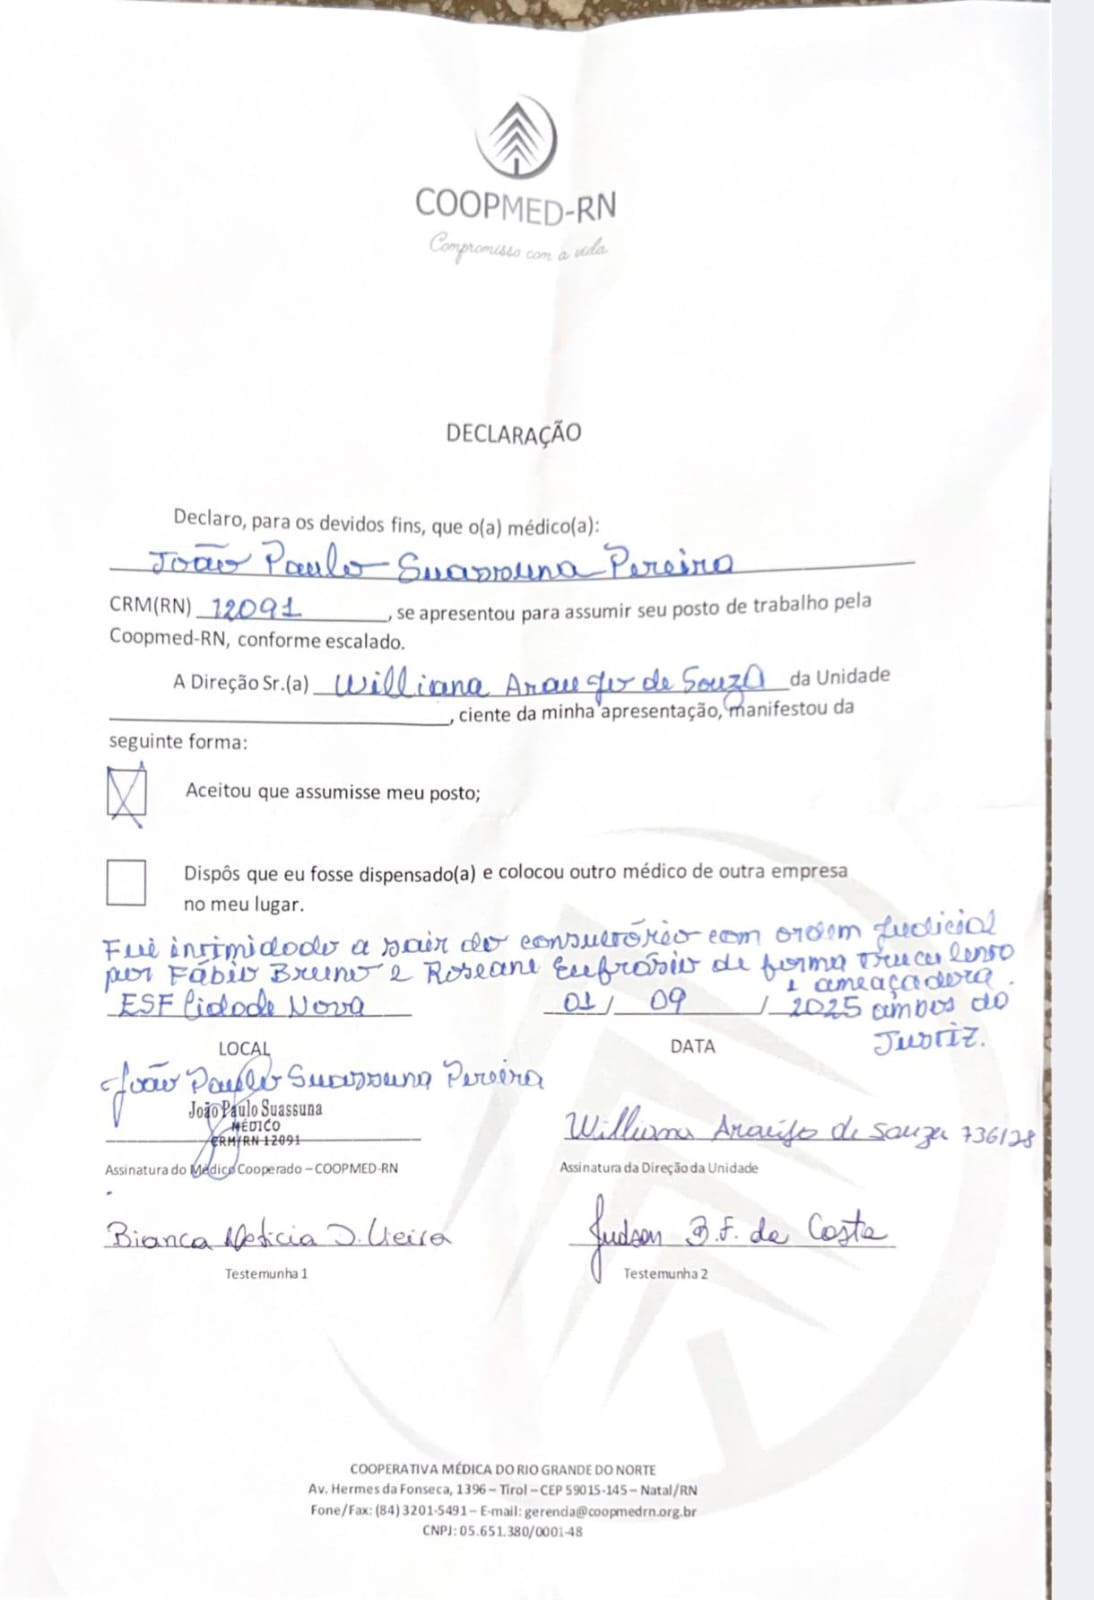 COOPMED-RN
Compromisso com a vida
DECLARAÇÃO
Declaro, para os devidos fins, que o(a) médico(a):
João Paulo Suassuna Pereira
CRM(RN) 12091, se apresentou para assumir seu posto de trabalho pela
Coopmed-RN, conforme escalado.
A Direção Sr.(a) Williana Araujo de Souza da Unidade
, ciente da minha apresentação, manifestou da
seguinte forma:
X Aceitou que assumisse meu posto;
Dispôs que eu fosse dispensado(a) e colocou outro médico de outra empresa
no meu lugar.
Fui intimidado a sair do consultório com ordem judicial
por Fábio Bruno e Roseane Eufrásio de forma truculenso
e ameaçadora.
ESF Cidade Nova 01/ 09 / 2025 ambos do
Justiz.
LOCAL DATA
João Paulo Suassuna Pereira
João Paulo Suassuna
MÉDICO
CRM/RN 12091
Williana Araújo de Souza 736128
Assinatura do Médico Cooperado – COOPMED-RN Assinatura da Direção da Unidade
Bianca Leticia D. Vieira Judson B.F. da Costa
Testemunha 1 Testemunha 2
COOPERATIVA MÉDICA DO RIO GRANDE DO NORTE
Av. Hermes da Fonseca, 1396 – Tirol – CEP 59015-145 – Natal/RN
Fone/Fax: (84) 3201-5491 – E-mail: gerencia@coopmedrn.org.br
CNPJ: 05.651.380/0001-48